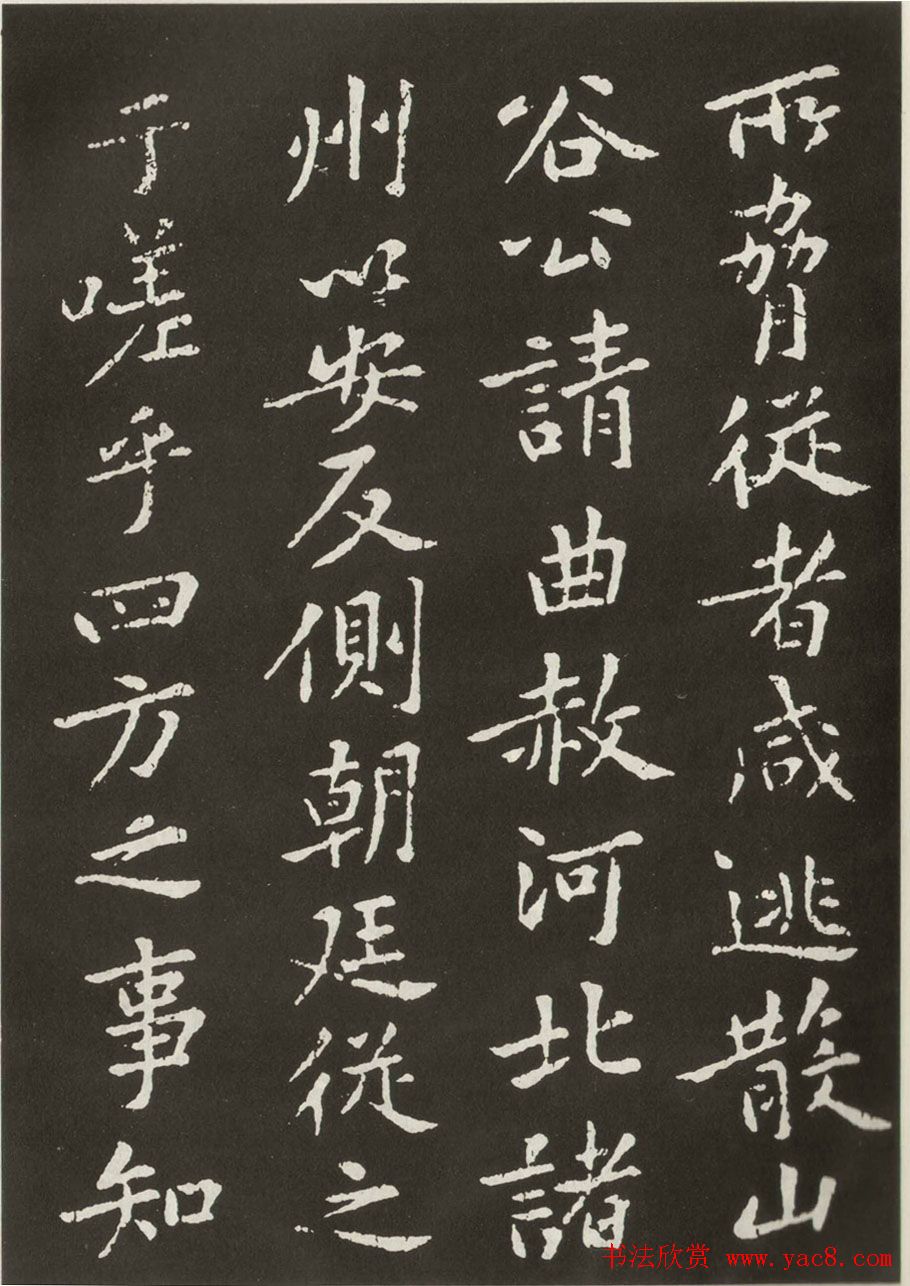 所脅從者咸逃散山
谷公請曲赦河北諸
州以安反側朝廷從之
于嗟乎四方之事知
书法欣赏 www.yac8.com